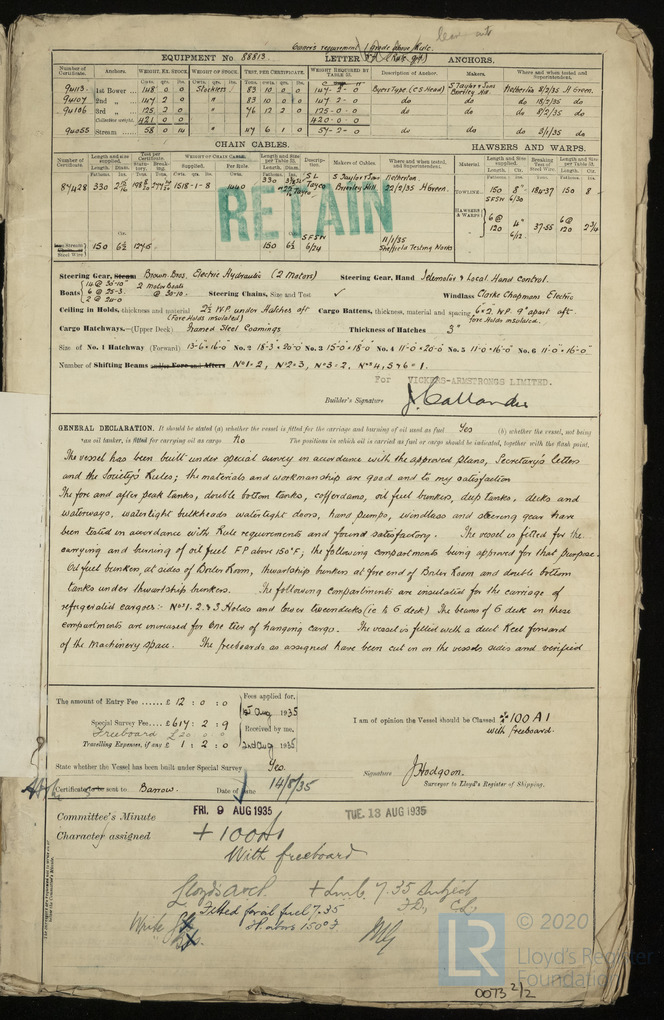 Owner's requirement 1 Grade above Rule.
EQUIPMENT No. 88813 LETTER ANCHORS.
Number of Certificate. Anchors. WEIGHT, EX. STOCK. WEIGHT OF STOCK. TEST, PER CERTIFICATE. WEIGHT REQUIRED BY TABLE 53. Description of Anchor. Makers. Where and when tested and Superintendent.
94113 1st Bower 148 0 0 Stockless 83 10 0 0 147-2-0 Byers Type (CS Head) S Taylor & Sons Brierley Hill Netherton 8/2/35 H Green.
94107 2nd " 147 2 0 " 83 10 0 0 147-2-0 do do 18/2/35 do
94106 3rd " 125 2 0 " 76 12 2 0 125-0-0 do do do 8/2/35 do
Collective weight. 421 0 0 420-0-0
94055 Stream 58 0 14 " 47 6 1 0 57-2-0 do do do 2/1/35 do
CHAIN CABLES. HAWSERS AND WARPS.
Number of Certificate. Length and size supplied. Test per Certificate. WEIGHT OF CHAIN CABLE. Length and size per Table 53. Description. Makers of Cables. Where and when tested, and Superintendent. Material. Length and size supplied. Breaking Test of Steel Wire. Length and size per Table 53.
84428 330 1518-1-8 1440 330 Tayco S Taylor & Sons Brierley Hill Netherton 22/2/35 H Green. TOWLINE 150 8" 184.37 150 8
SFSW 6/30
HAWSERS & WARPS 6 @ 120 4" 6/12 37.55 6 @ 120 2¾
Steel Wire 150 6½ 127.5 150 6½ SFSW 6/24 11/1/35 Sheffield Testing Works
RETAIN
Steering Gear, Steam Brown Bros. Electric Hydraulic (2 Motors) Steering Gear, Hand Telemotor & Local Hand Control.
Boats 14 @ 30-10" 6 @ 25-3 2 @ 26-0 2 Motor boats @ 30-10" Steering Chains, Size and Test ✓ Windlass Clarke Chapmans Electric
Ceiling in Holds, thickness and material 2½ W.P. under Hatches aft (Fore Holds insulated) Cargo Battens, thickness, material and spacing 6 x 2 W.P. 9" apart aft. Fore Holds insulated.
Cargo Hatchways.—(Upper Deck) Framed Steel Coamings Thickness of Hatches 3"
Size of No. 1 Hatchway (Forward) 13-6 x 16-0 No. 2 18-3 x 20-0 No. 3 15-0 x 18-0 No. 4 11-0 x 20-0 No. 5 11-0 x 16-0 No. 6 11-0 x 16-0
Number of Shifting Beams and/or Fore and Afters No 1=2, No 2=3, No 3=2, Nos 4, 5 & 6=1.
For VICKERS-ARMSTRONGS LIMITED.
Builder's Signature J Callander
GENERAL DECLARATION. It should be stated (a) whether the vessel is fitted for the carriage and burning of oil used as fuel Yes (b) whether the vessel, not being
an oil tanker, is fitted for carrying oil as cargo No The positions in which oil is carried as fuel or cargo should be indicated, together with the flash point.
The vessel has been built under special survey in accordance with the approved plans, Secretary's letters
and the Society's Rules; the materials and workmanship are good and to my satisfaction
The fore and after peak tanks, double bottom tanks, cofferdams, oil fuel bunkers, deep tanks, decks and
waterways, watertight bulkheads watertight doors, hand pumps, windlass and steering gear have
been tested in accordance with Rule requirements and found satisfactory. The vessel is fitted for the
carrying and burning of oil fuel F P above 150°F; the following compartments being approved for that purpose.
Oil fuel bunkers at sides of Boiler Room, thwartship bunkers at fore end of Boiler Room and double bottom
tanks under thwartship bunkers. The following compartments are insulated for the carriage of
refrigerated cargoes:- Nos 1. 2. & 3 Holds and lower tweendecks (ie to G deck) The beams of G deck in these
compartments are increased for one tier of hanging cargo. The vessel is fitted with a duct Keel forward
of the Machinery space. The freeboards as assigned have been cut in on the vessels sides and verified
The amount of Entry Fee ...... £ 12 : 0 : 0 Fees applied for,
1st Aug 1935
Special Survey Fee.... £ 617 : 2 : 9 Received by me,
Freeboard £20 0 0
Travelling Expenses, if any £ 1 : 2 : 0 2nd Aug 1935
I am of opinion the Vessel should be Classed +100 A1
with freeboard.
State whether the Vessel has been built under Special Survey Yes.
Signature J Hodgson.
Surveyor to Lloyd's Register of Shipping.
Certificate to be sent to Barrow. Date of issue 14/8/35
Committee's Minute FRI. 9 AUG 1935 TUE. 13 AUG 1935
Character assigned + 100A1
With freeboard
Lloyds A & C P + LMC 7.35 Subject
Fitted for oil fuel 7.35 F.D, C.L.
F.P. above 150° F
Write
© 2020
LR Lloyd's Register
Foundation
0073 2/2